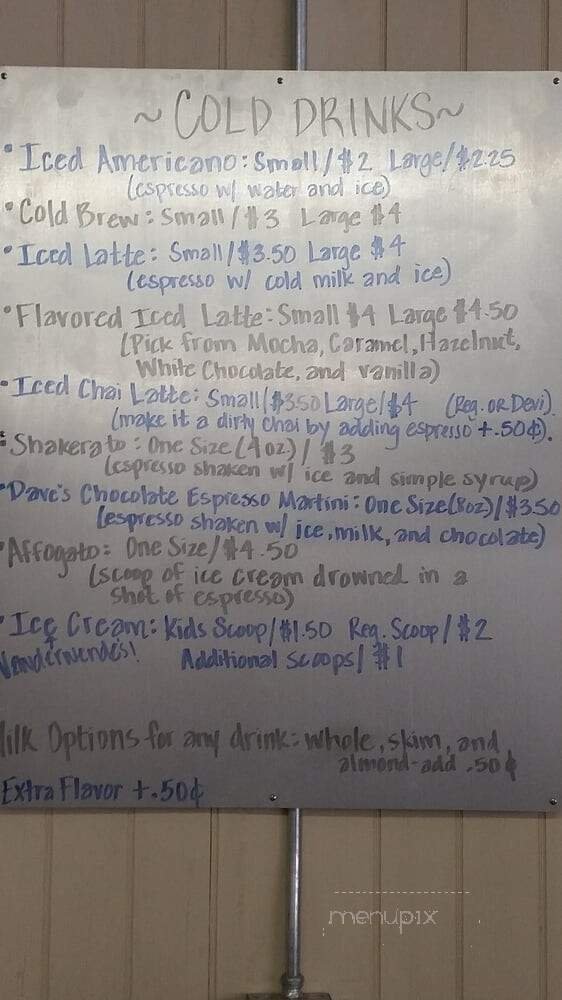 ~ COLD DRINKS ~
• Iced Americano: Small/$2 Large/$2.25
(espresso w/ water and ice)
• Cold Brew: Small/$3 Large $4
• Iced Latte: Small/$3.50 Large $4
(espresso w/ cold milk and ice)
• Flavored Iced Latte: Small $4 Large $4.50
(Pick from Mocha, Caramel, Hazelnut,
White Chocolate, and vanilla)
• Iced Chai Latte: Small/$3.50 Large/$4 (Reg. OR Devi).
(make it a dirty chai by adding espresso +.50¢).
• Shakerato: One Size (4oz.)/$3
(espresso shaken w/ ice and simple syrup)
• Dave's Chocolate Espresso Martini: One Size(8oz)/$3.50
(espresso shaken w/ ice, milk, and chocolate)
• Affogato: One Size/$4.50
(scoop of ice cream drowned in a
shot of espresso)
• Ice Cream: Kids Scoop/$1.50 Reg. Scoop/$2
Additional scoops/ $1
ilk Options for any drink: whole, skim, and
almond-add .50¢
Extra Flavor +.50¢
menupix